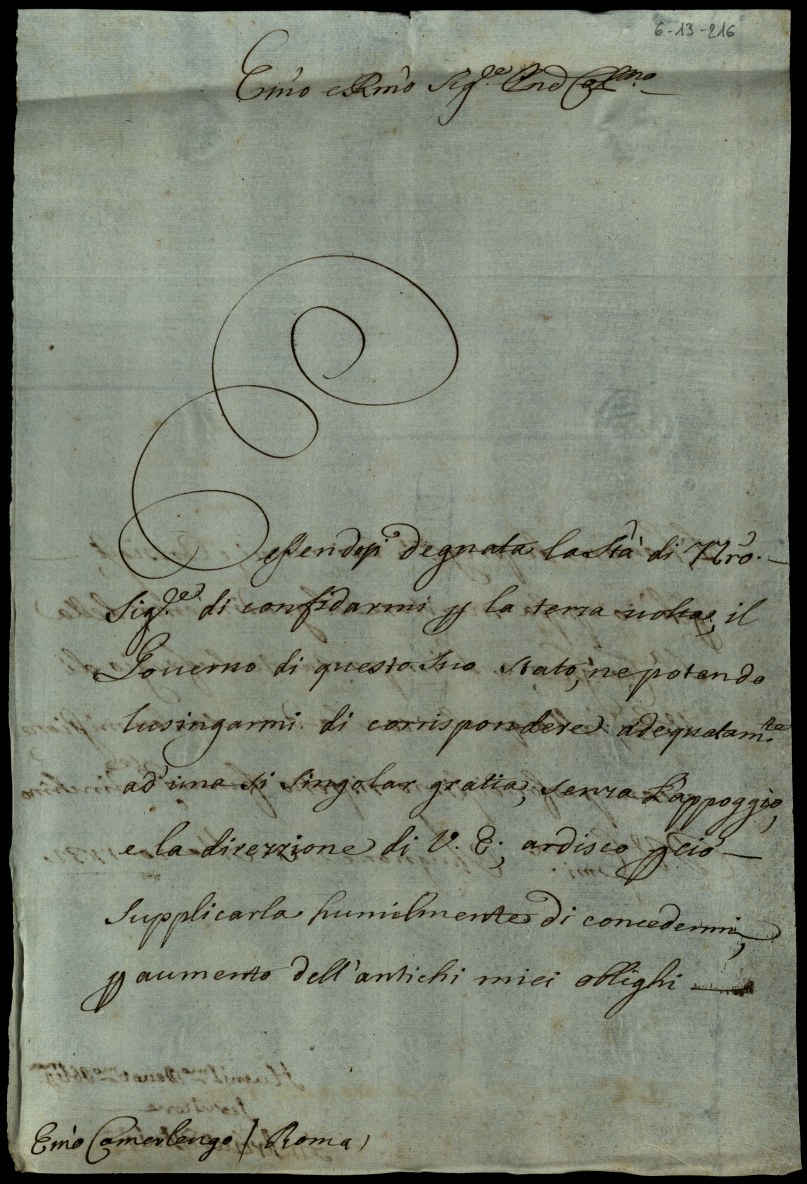 6-13-216
Em̃o e Rm̃o Sig.re Pnd Col.mo
Essendosi degnata la Stà di Nrõ.
Sig.re di confidarmi p la terza volta, il
Governo di questo suo stato, ne potendo
lusingarmi di corrispondere adequatam.te
ad' una si singolar gratia, senza l'appoggio,
e la direzzione di V. E., ardisco p ciò
supplicarla humilmente di concedermi,
p aumento dell'antichi miei oblighi
Em̃o Camerlengo / Roma /